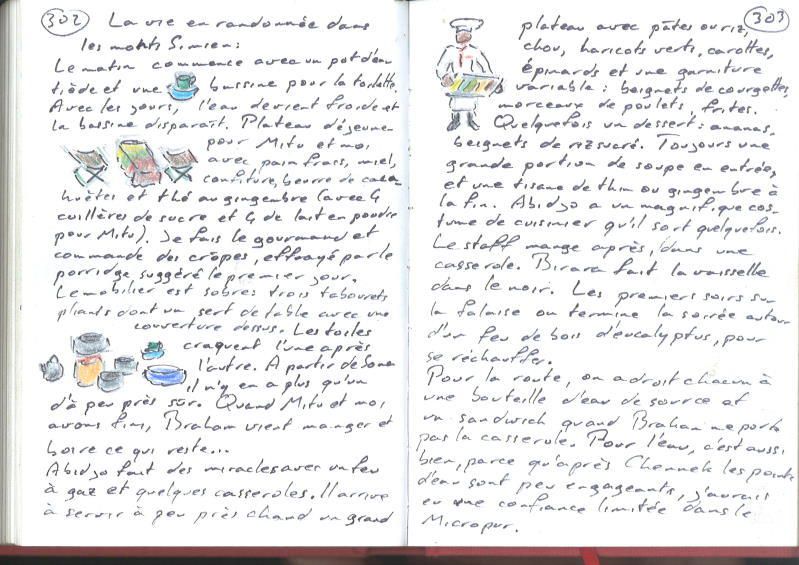 302 La vie en randonnée dans
les monts Simien :
Le matin commence avec un pot d'eau
tiède et une bassine pour la toilette.
Avec les jours, l'eau devient froide et
la bassine disparaît. Plateau déjeuner
pour Mitu et moi
avec pain frais, miel,
confiture, beurre de caca-
huètes et thé au gingembre (avec 4
cuillères de sucre et 4 de lait en poudre
pour Mitu). Je fais le gourmand et
commande des crêpes, effrayé par le
porridge suggéré le premier jour.
Le mobilier est sobre : trois tabourets
pliants dont un sert de table avec une
couverture dessus. Les toiles
craquent l'une après
l'autre. A partir de Sona
il n'y en a plus qu'un
d'à peu près sûr. Quand Mitu et moi
avons fini, Braham vient manger et
boire ce qui reste...
Abidjo fait des miracles avec un feu
à gaz et quelques casseroles. Il arrive
à servir à peu près chaud un grand
303
plateau avec pâtes ou riz,
chou, haricots verts, carottes,
épinards et une garniture
variable : beignets de courgettes,
morceaux de poulets, frites.
Quelquefois un dessert : ananas,
beignets de riz sucré. Toujours une
grande portion de soupe en entrée,
et une tisane de thim ou gingembre à
la fin. Abidjo a un magnifique cos-
tume de cuisinier qu'il sort quelquefois.
Le staff mange après, dans une
casserole. Birara fait la vaisselle
dans le noir. Les premiers soirs sur
la falaise on termine la soirée autour
d'un feu de bois d'eucalyptus, pour
se réchauffer.
Pour la route, on a droit chacun à
une bouteille d'eau de source et
un sandwich quand Braham ne porte
pas la casserole. Pour l'eau, c'est aussi
bien, parce qu'après Chennek les points
d'eau sont peu engageants, j'aurais
eu une confiance limitée dans le
Micropur.